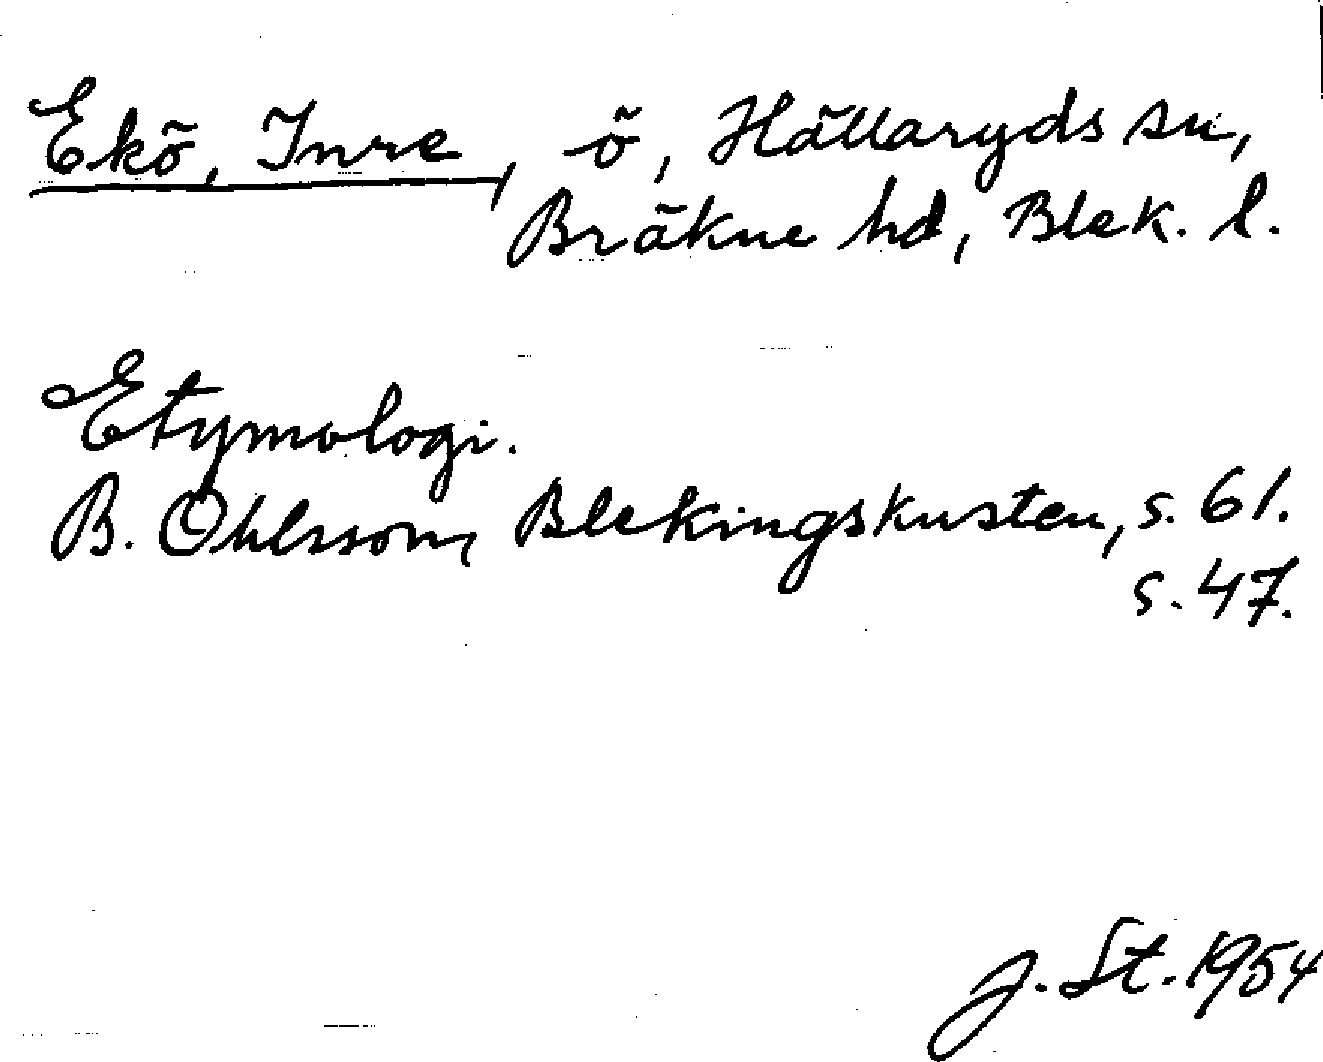 Ekö, Inre, ö, Hällaryds sn,
Bräkne hd, Blek. l.
Etymologi.
B. Ohlsson, Blekingskusten, s. 61.
s. 47.
J. St. 1954